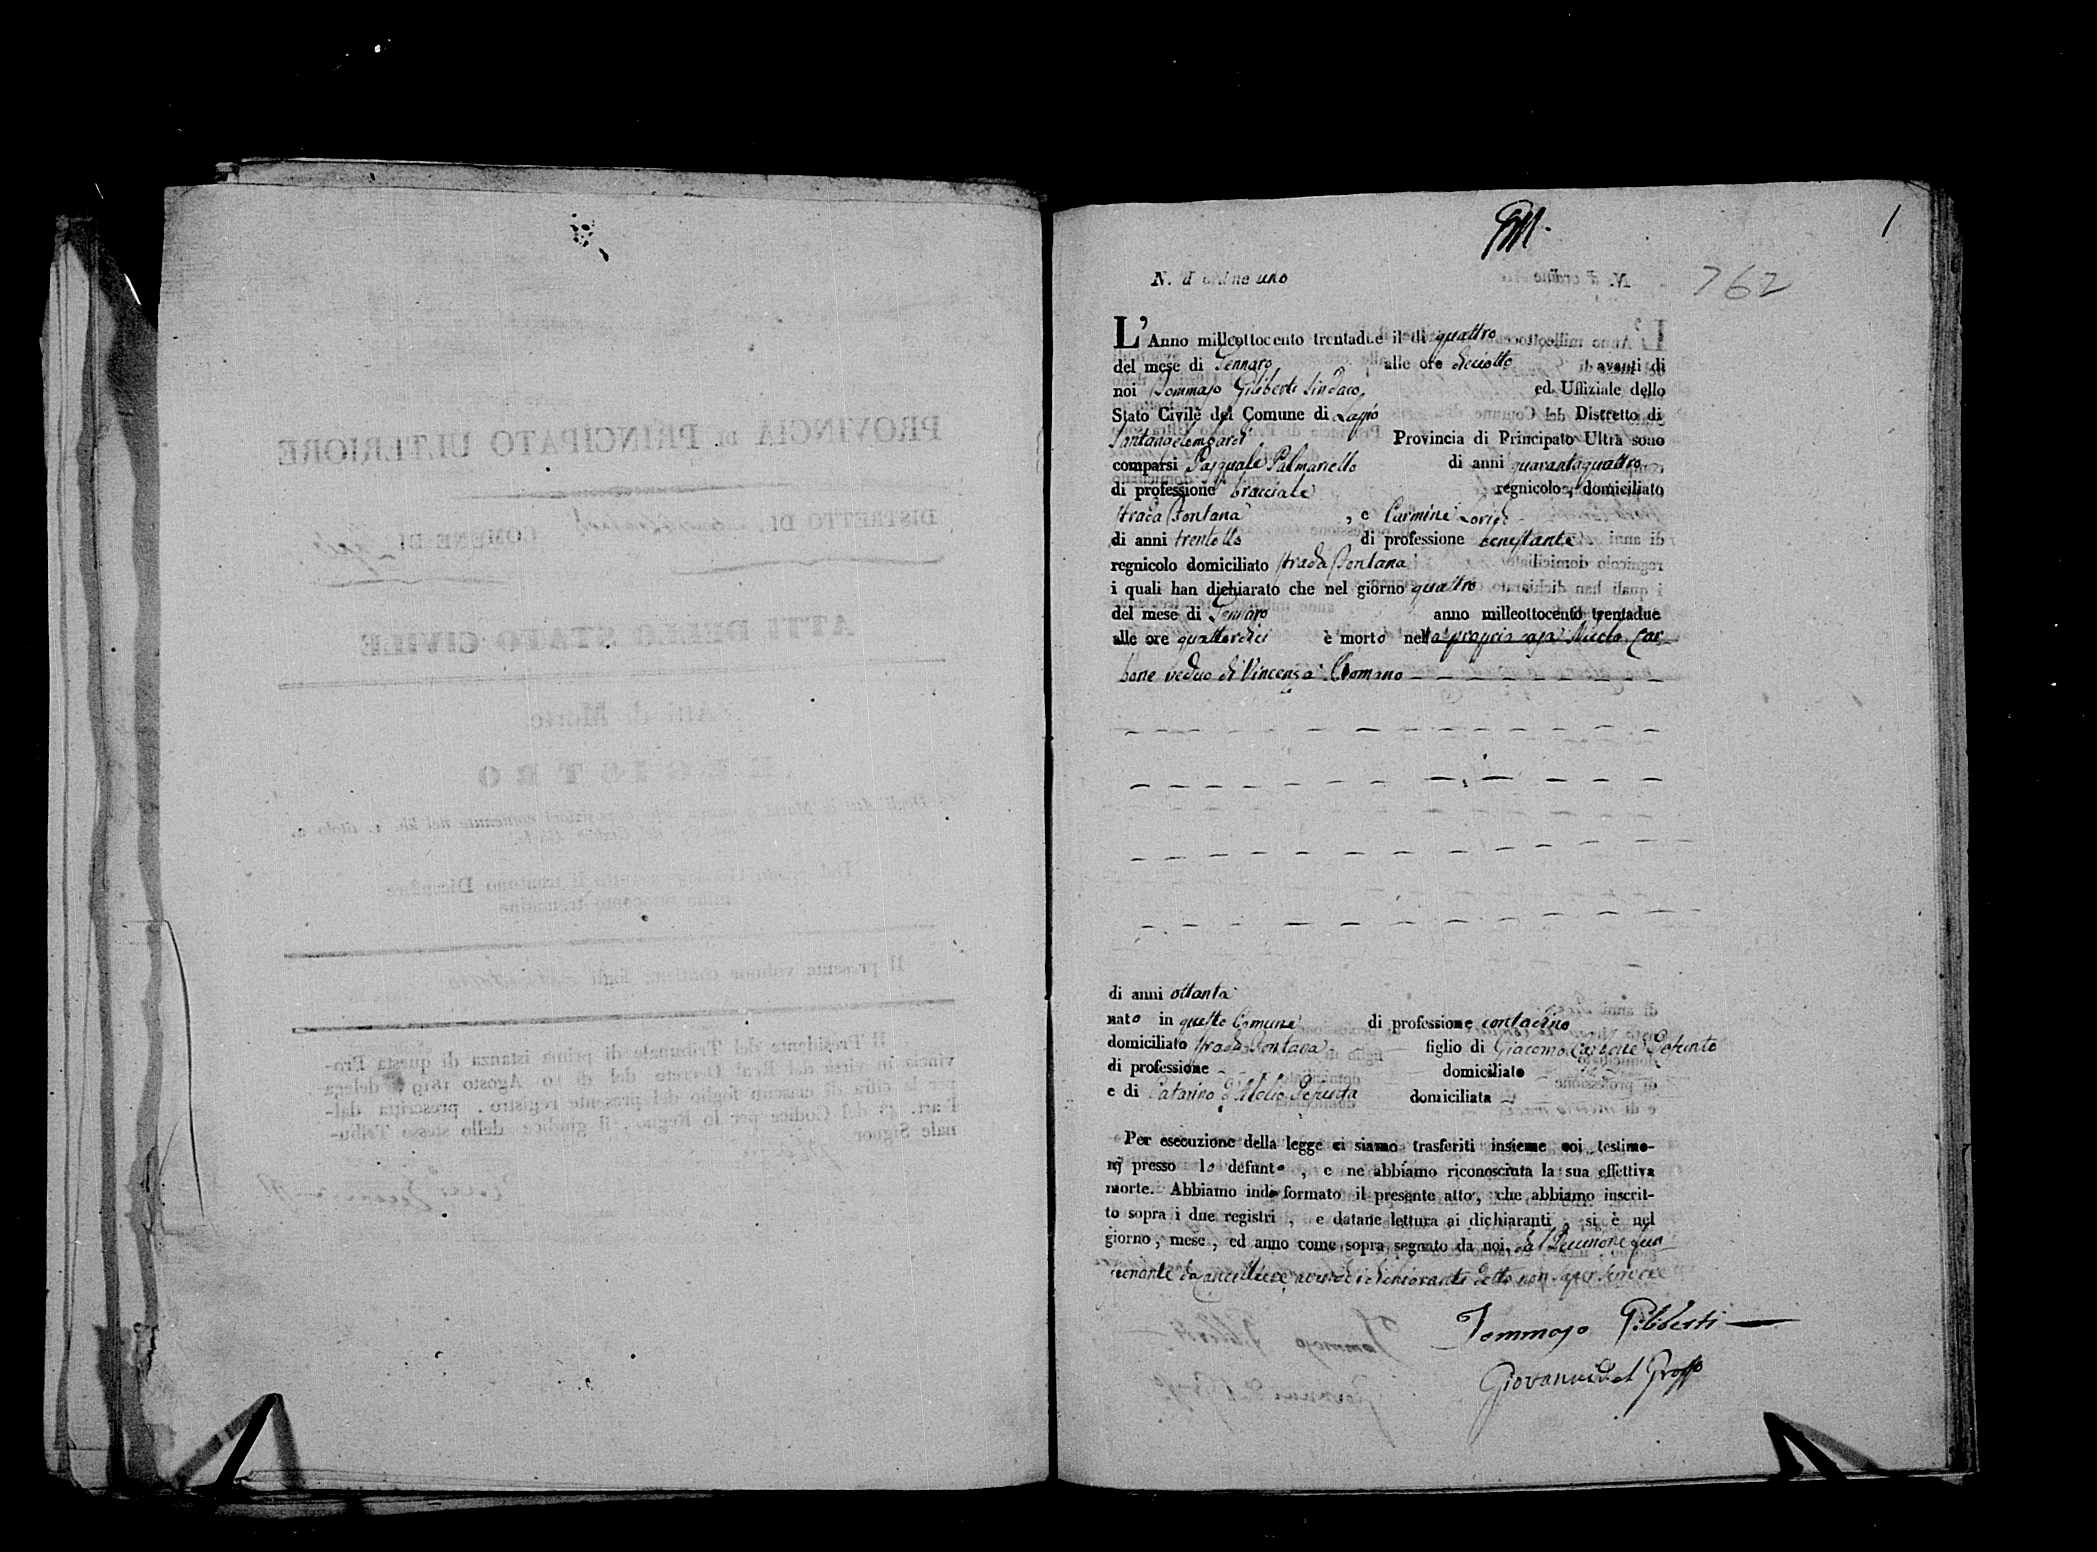 1
762
N. d'ordine uno
L'Anno milleottocento trentadue il dì quattro
del mese di Gennaro alle ore diciotto avanti di
noi Tommaso Giliberti Sindaco, ed Uffiziale dello
Stato Civile del Comune di Lapio Distretto di
Santangelombardi Provincia di Principato Ultra sono
comparsi Pasquale Palmariello di anni quarantaquattro
di professione bracciale regnicolo, domiciliato
strada Fontana, e Carmine
di anni trentotto di professione benestante
regnicolo domiciliato strada Fontana
i quali han dichiarato che nel giorno quattro
del mese di Gennaro anno milleottocento trentadue
alle ore quattordici è morto nella propria casa Nicola Car-
bone veduo di Vincenza Romano
di anni ottanta
nato in questo Comune di professione contadino
domiciliato strada Fontana figlio di Giacomo Carbone Defunto
di professione domiciliato
e di Catarina d'Alelio Defunta domiciliata
Per esecuzione della legge ci siamo trasferiti insieme coi testimo-
nj presso lo defunto, e ne abbiamo riconosciuta la sua effettiva
morte. Abbiamo indi formato il presente atto, che abbiamo inscrit-
to sopra i due registri, e datane lettura ai dichiaranti, si è nel
giorno, mese, ed anno come sopra segnato da noi, dal Decurione fun
zionante da cancelliere avendo i dichiaranti detto non saper scrivere
Tommaso Giliberti
Giovanni del Grosso
PROVINCIA DI PRINCIPATO ULTERIORE
DISTRETTO DI COMUNE DI Lapio
ATTI DELLO STATO CIVILE
Atti di Morte
REGISTRO
Il presente volume contiene fogli
Il Presidente del Tribunale di prima istanza di questa Pro-
vincia in virtù del Real Decreto del dì 10 Agosto 1819, delega
per la cifra di ciascun foglio del presente registro, prescritta dal-
l'art. 43 del Codice per lo Regno, il giudice dello stesso Tribu-
nale Signor